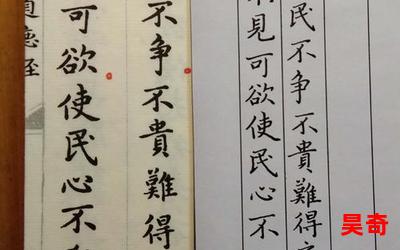 民不争不貴難得
見可欲使民心不
不争不貴難得
可欲使民心不
德
昊奇